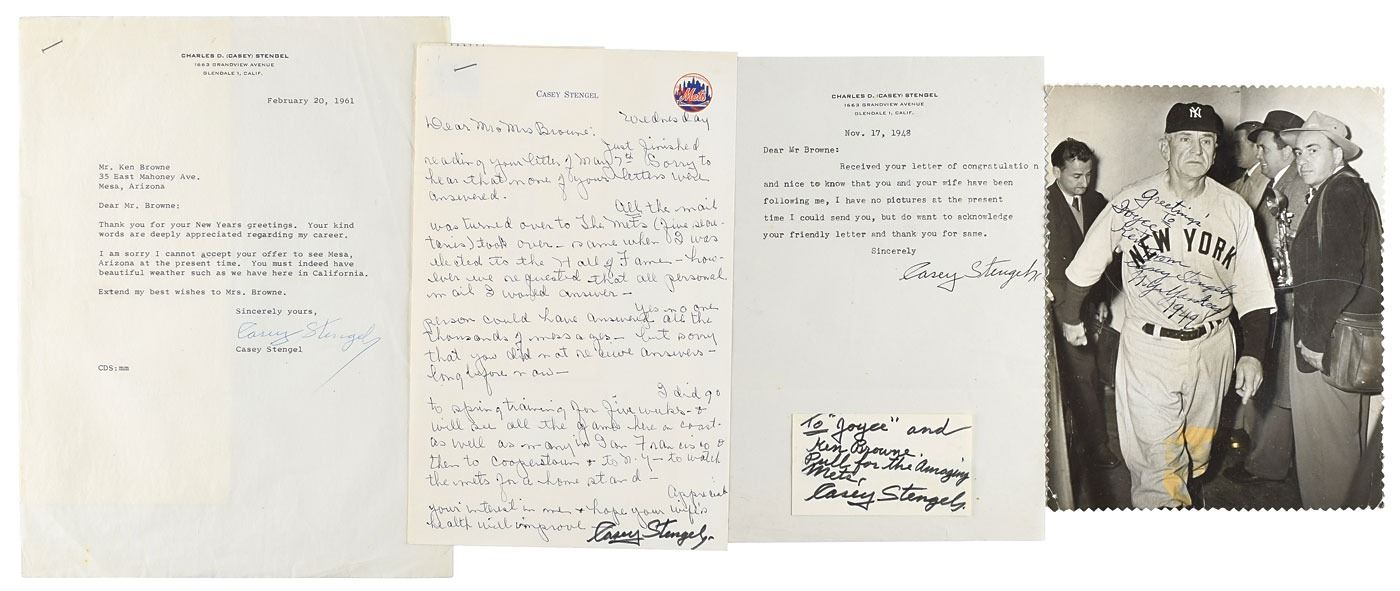 CHARLES D. (CASEY) STENGEL
1663 GRANDVIEW AVENUE
GLENDALE 1, CALIF.
February 20, 1961
Mr. Ken Browne
35 East Mahoney Ave.
Mesa, Arizona
Dear Mr. Browne:
Thank you for your New Years greetings. Your kind
words are deeply appreciated regarding my career.
I am sorry I cannot accept your offer to see Mesa,
Arizona at the present time. You must indeed have
beautiful weather such as we have here in California.
Extend my best wishes to Mrs. Browne.
Sincerely yours,
Casey Stengel
Casey Stengel
CDS:mm
CASEY STENGEL
Mets
Wednesday
Dear Mr & Mrs Browne:
Just finished
reading your letter of May 7th Sorry to
hear that none of your letters were
answered.
All the mail
was turned over to The Mets (five secre-
taries) took over - same when I was
elected to the Hall of Fame - how-
ever we requested that all personal
mail I would answer -
Yes no one
person could have answered all the
thousands of messages - but sorry
that you did not receive answers -
long before now -
I did go
to spring training for five weeks - &
will see all the games here on coast -
as well as many in San Francisco &
then to Cooperstown & to N.Y - to watch
the mets for a home stand -
Appreciate
your interest in me & hope your wife's
health will improve -
Casey Stengel
CHARLES D. (CASEY) STENGEL
1663 GRANDVIEW AVENUE
GLENDALE 1, CALIF.
Nov. 17, 1948
Dear Mr Browne:
Received your letter of congratulation
and nice to know that you and your wife have been
following me, I have no pictures at the present
time I could send you, but do want to acknowledge
your friendly letter and thank you for same.
Sincerely
Casey Stengel
To "Joyce" and
Ken Browne.
Pull for the Amazing
Mets,
Casey Stengel
NY
NEW YORK
Greetings
To
Joyce &
Ken
From
Casey Stengel
1949